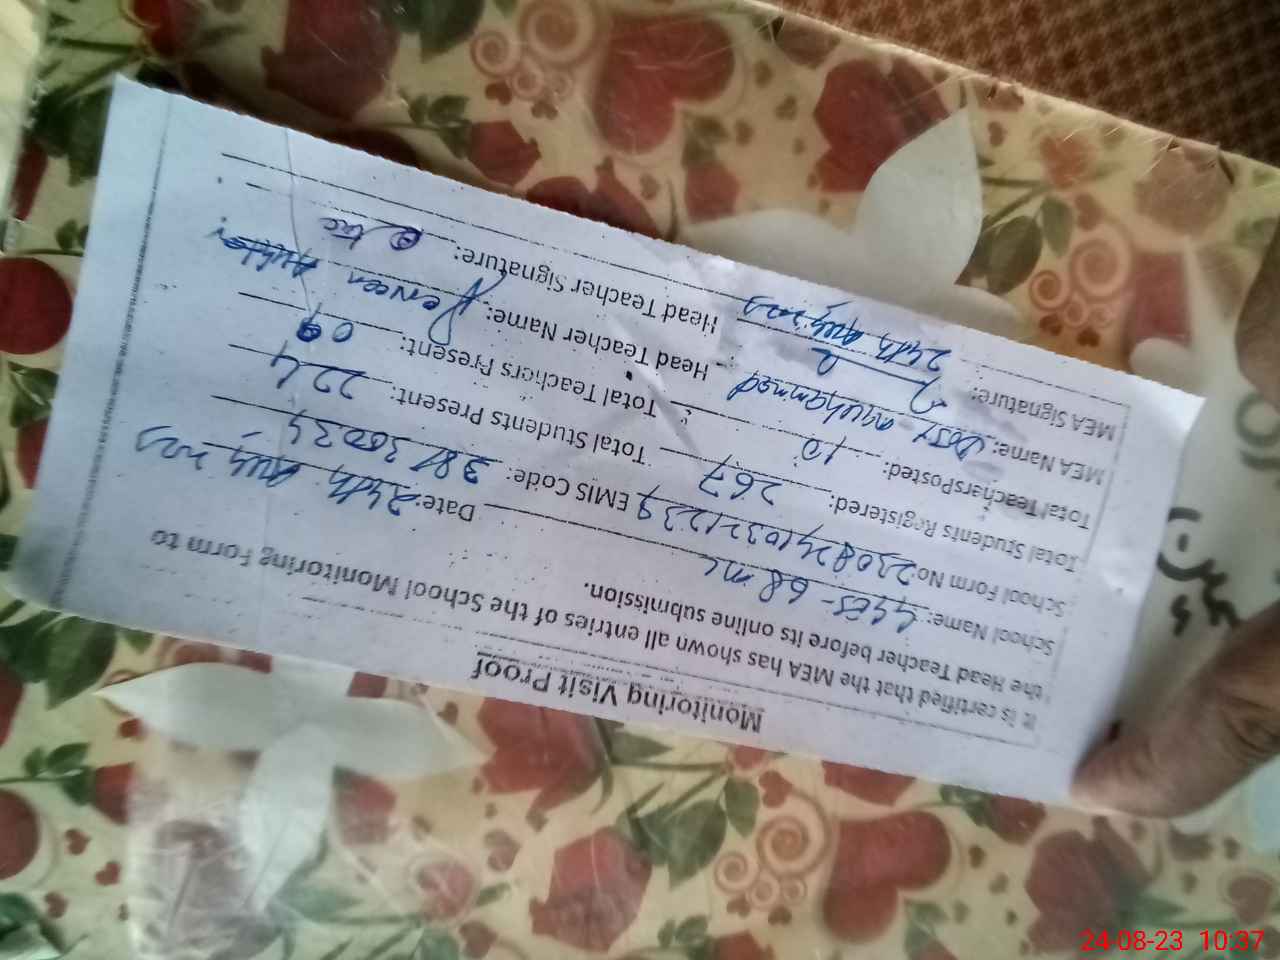 Monitoring Visit Proof
It is certified that the MEA has shown all entries of the School Monitoring Form to
the Head Teacher before its online submission.
School Name: GGES - 68 ML Date: 24th Aug, 2023
School Form No: EMIS Code:
Total Students Registered: 267 Total Students Present: 224
Total Teachers Posted: 10 Total Teachers Present: 09
MEA Name: Muhammad Head Teacher Name: Perveen
MEA Signature: Head Teacher Signature:
24th Aug, 2023
24-08-23 10:37